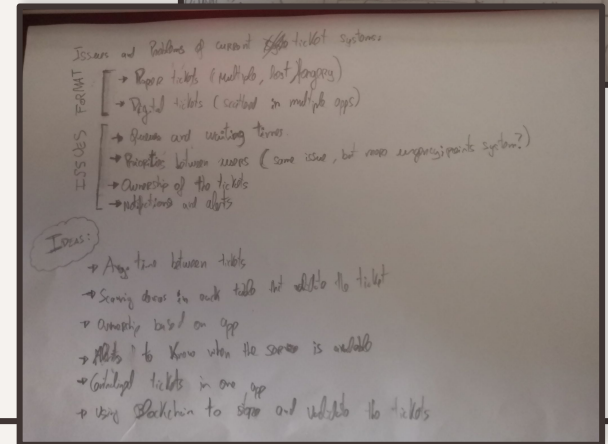 Issues and Problems of current ticket systems:
FORMAT
→ Paper tickets (Multiple, lost,
→ Digital tickets (scattered in multiple apps)
ISSUES
→ Queues and waiting times
→ Priorities between users (same issue, but more urgency; points system?)
→ Ownership of the tickets
→ notifications and alerts
IDEAS:
→ time between tickets
→ in each table that validate the ticket
→ Ownership based on app
→ Alerts to know when the is available
→ Centralized tickets in one app
→ Using Blockchain to store and validate the tickets